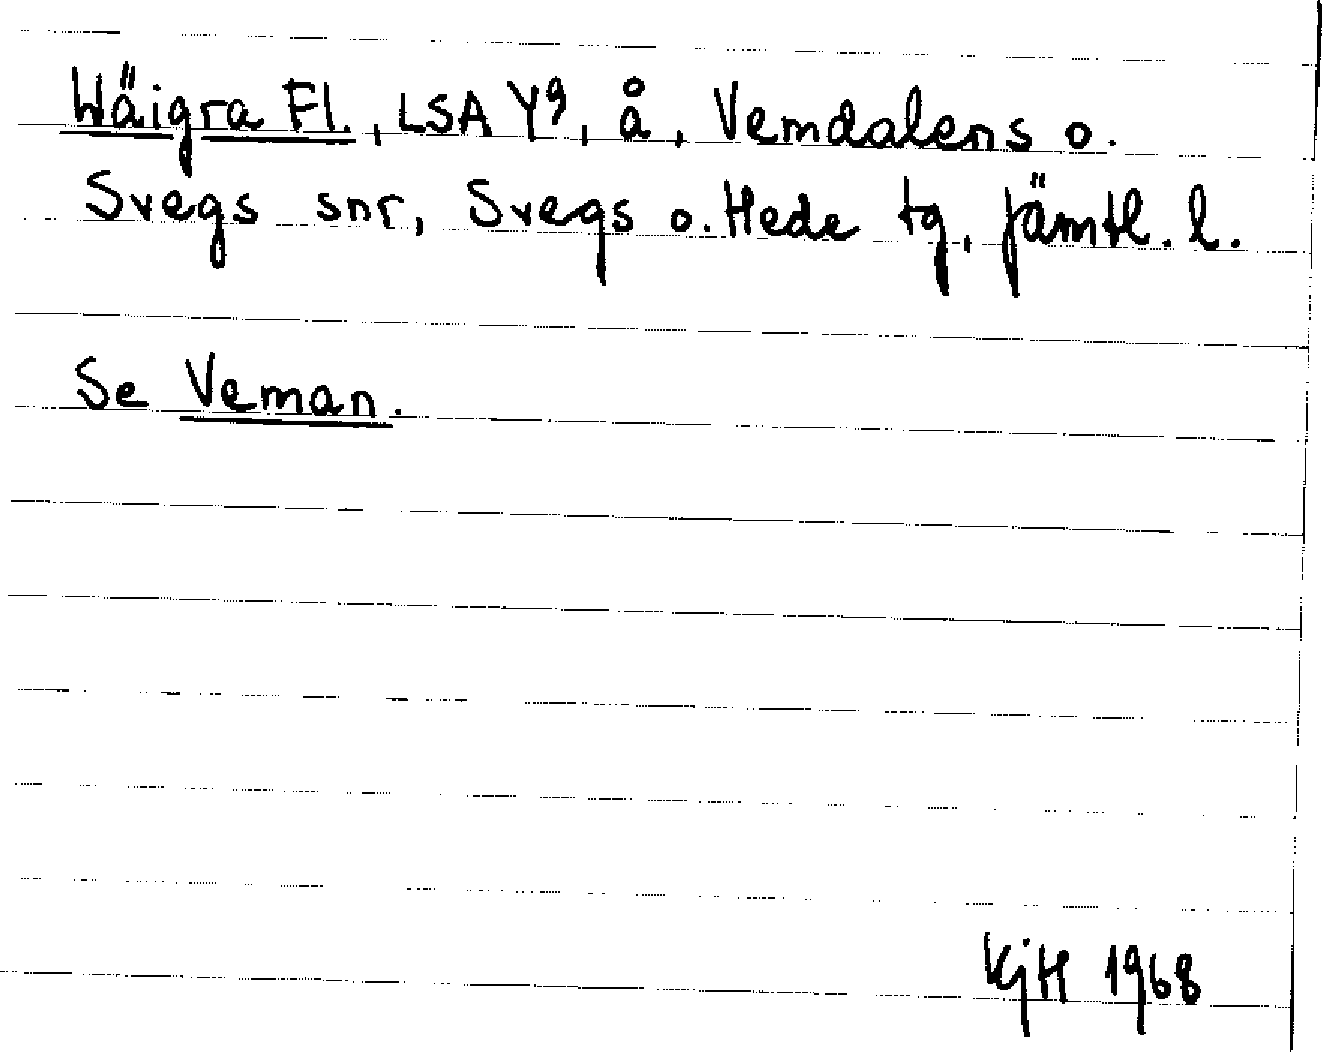 Wäigra Fl., LSA Y⁹, å, Vemdalens o.
Svegs snr, Svegs o. Hede tg, Jämtl. l.
Se Veman.
KjH 1968